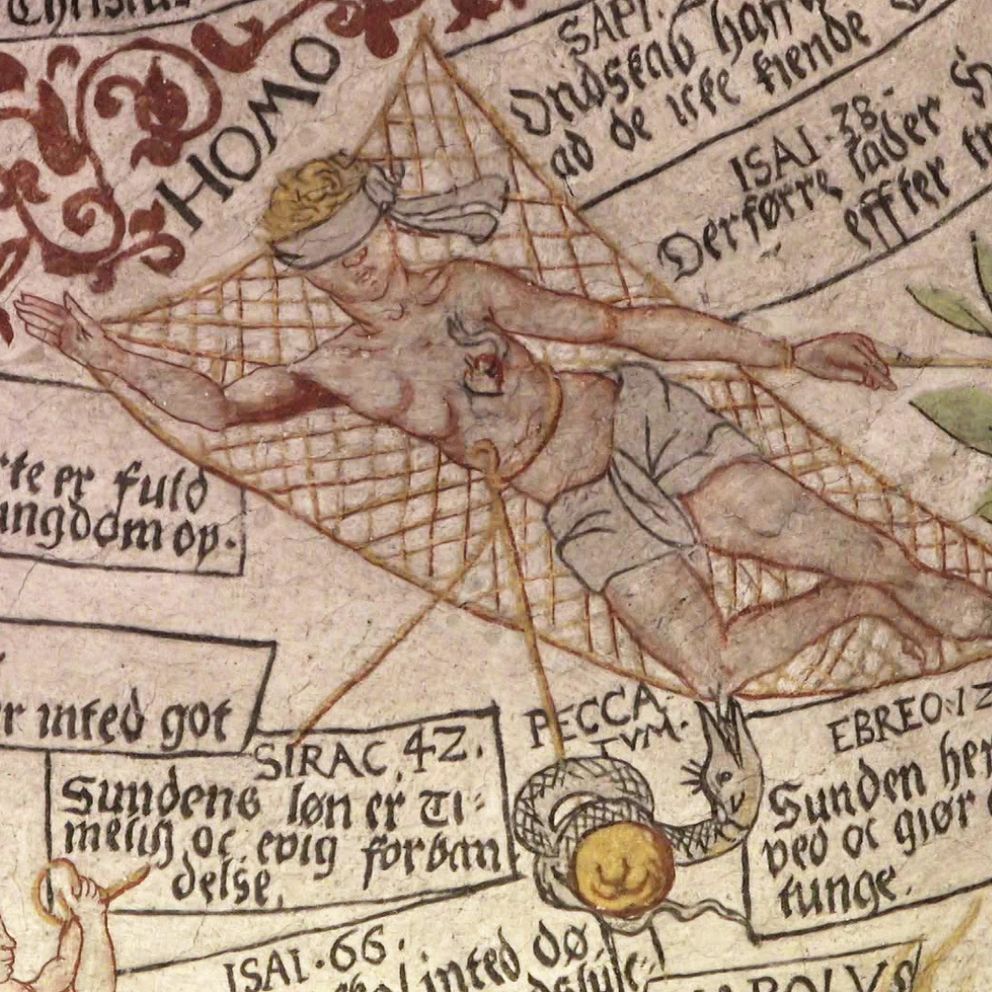 Christus
HOMO
SAPI.
Ondskab haff
ad de icke kiende
ISAI. 38.
Derførre lader
effter
te er fuld
ungdom op.
r inted got
SIRAC. 42.
Sundens løn er Ti-
melig oc evig forban
delse.
PECCA
TVM.
EBREO. 12
Sunden her
ved oc giør
tunge.
ISAI. 66.
skal inted dø